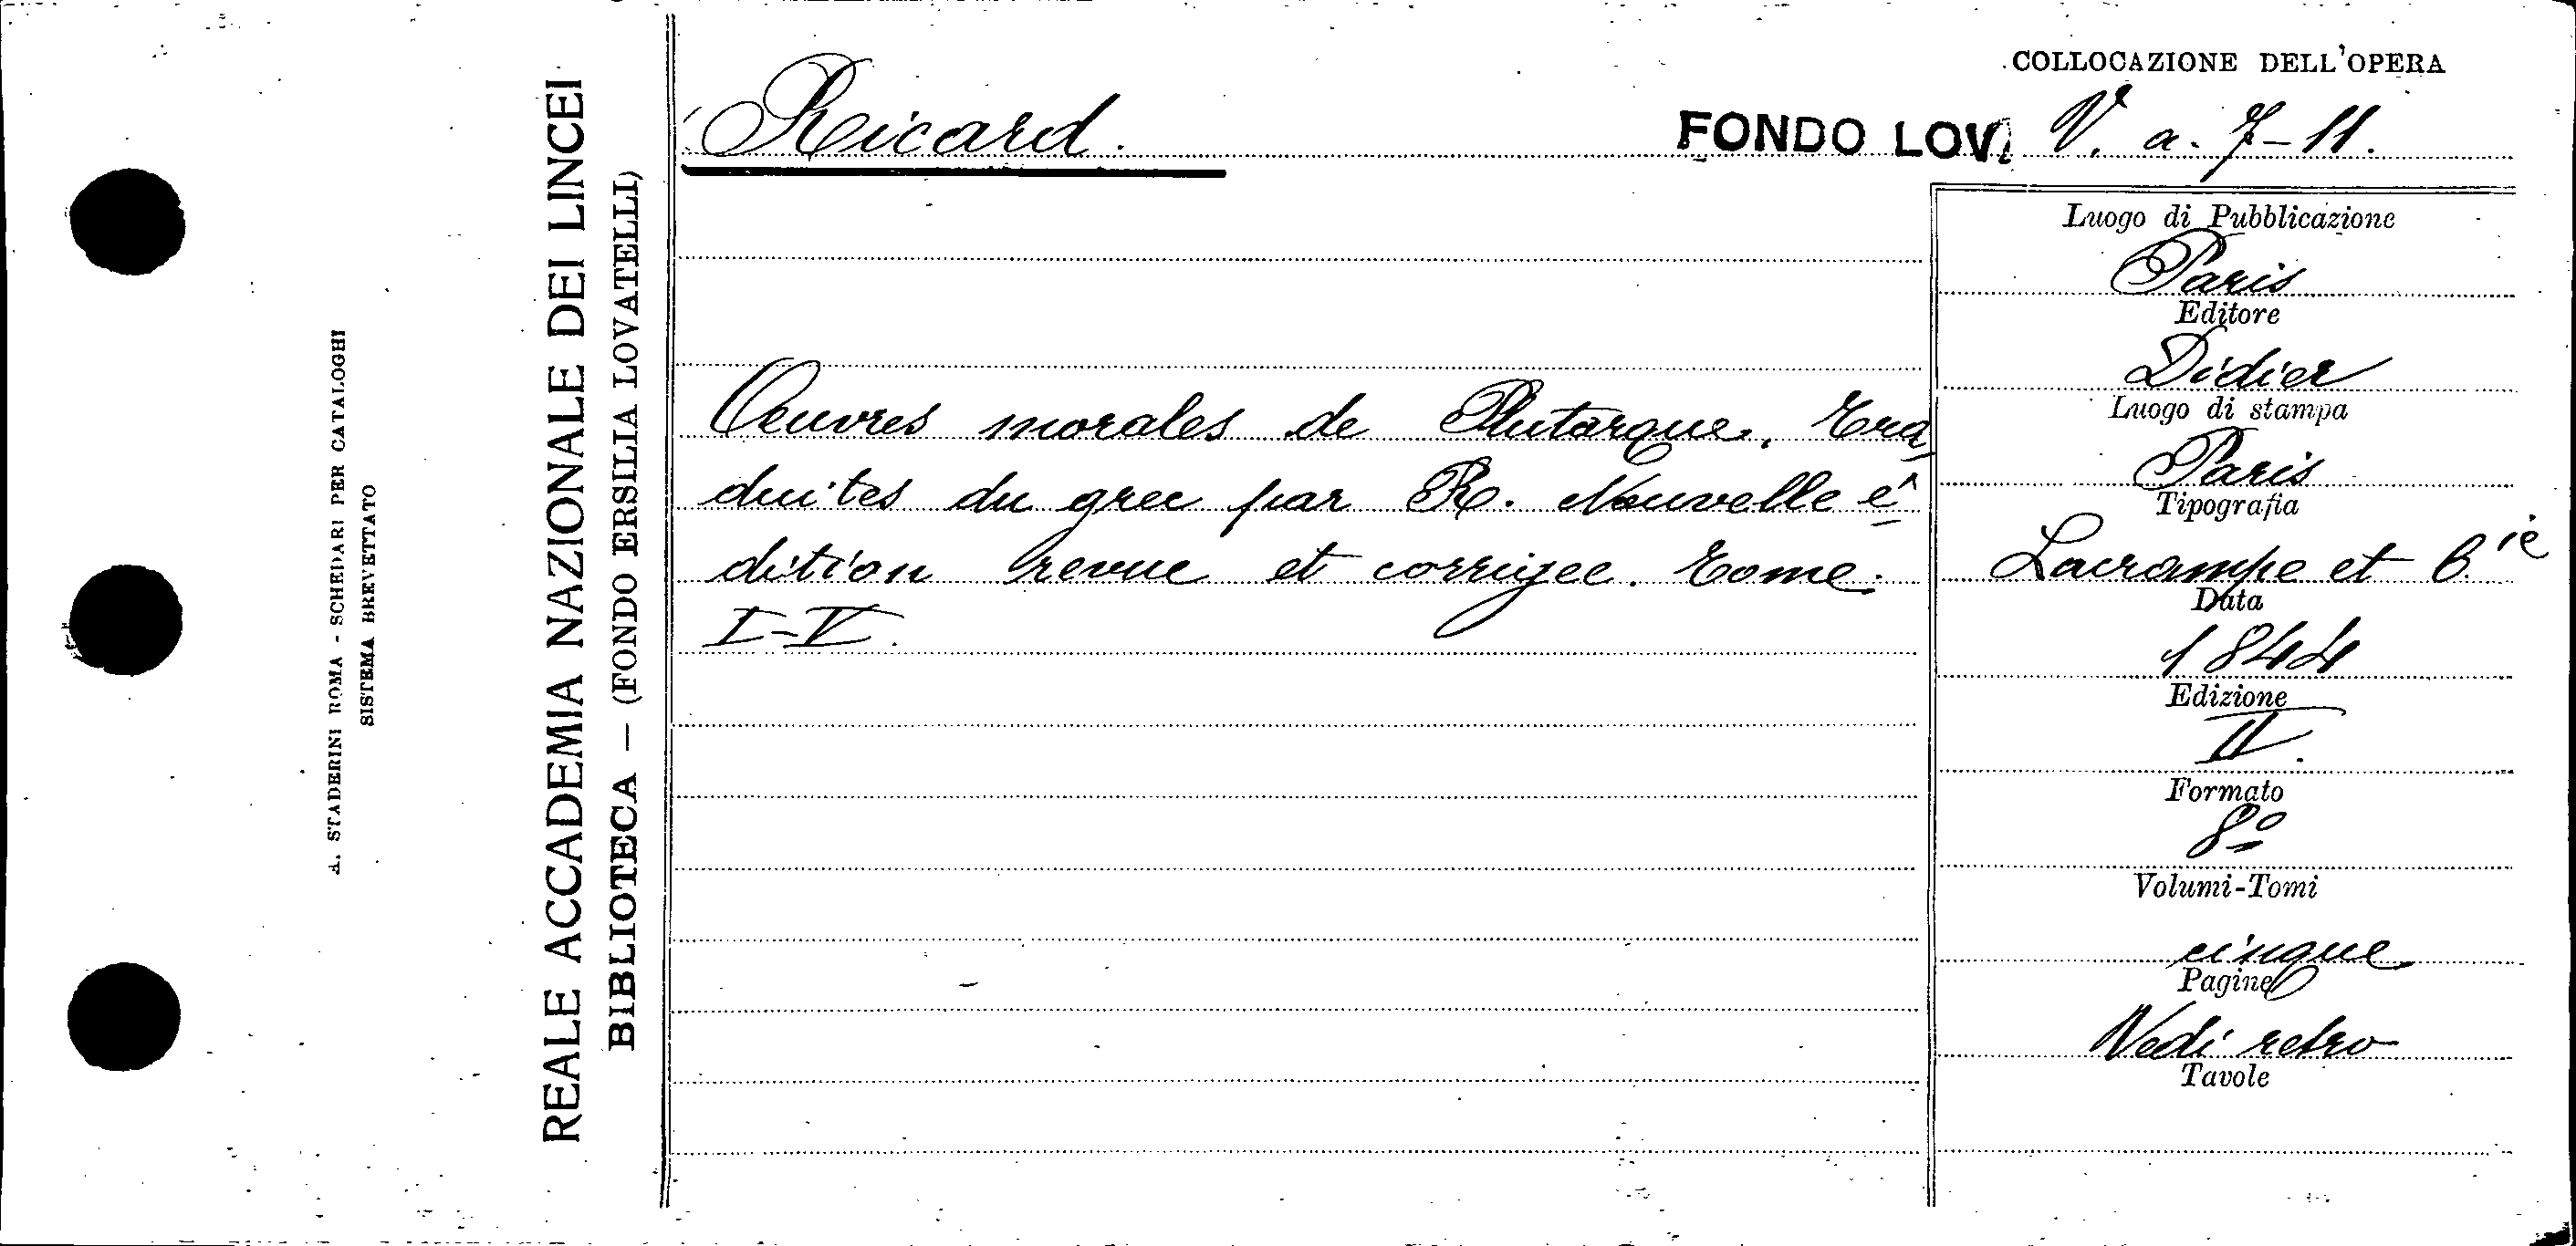 A. STADERINI ROMA - SCHEDARI PER CATALOGHI
SISTEMA BREVETTATO
REALE ACCADEMIA NAZIONALE DEI LINCEI
BIBLIOTECA — (FONDO ERSILIA LOVATELLI)
Ricard.
COLLOCAZIONE DELL'OPERA
FONDO LOV. V. a. 7-11.
Oeuvres morales de Plutarque. Tra
duites du grec par R. Nouvelle é
dition revue et corrigee. Tome
I-V.
Luogo di Pubblicazione
Paris
Editore
Didier
Luogo di stampa
Paris
Tipografia
Lacrampe et C.ie
Data
1844
Edizione
II.
Formato
8º
Volumi-Tomi
cinque
Pagine
Vedi retro
Tavole